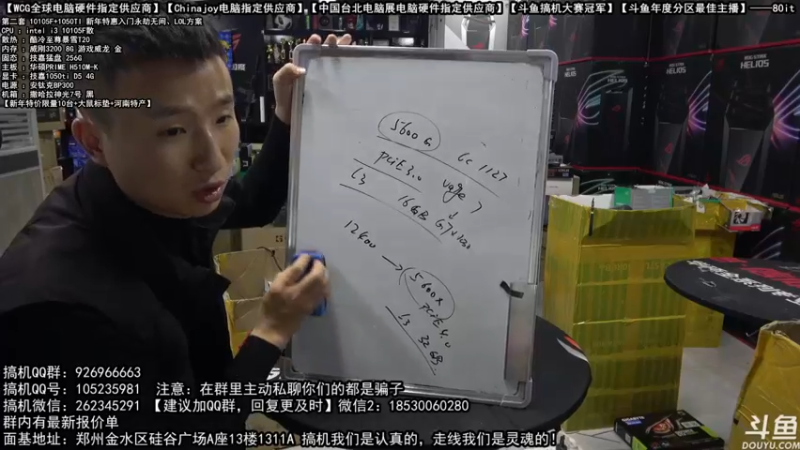 【WCG全球电脑硬件指定供应商】【Chinajoy电脑指定供应商】【中国台北电脑展电脑硬件指定供应商】【斗鱼搞机大赛冠军】【斗鱼年度分区最佳主播】——80it
第二套 10105F+1050TI 新年特惠入门永劫无间、LOL方案
CPU : intel i3 10105F散
散热 : 酷冷至尊暴雪T20
内存 : 威刚3200 8G 游戏威龙 金
固态 : 技嘉猛盘 256G
主板 : 华硕PRIME H510M-K
显卡 : 技嘉1050ti D5 4G
电源 : 安钛克BP300
机箱 : 撒哈拉神光7号 黑
【新年特价限量10台+大鼠标垫+河南特产】
5600G 6c
PCIE3.0 vega 7
L3 16MB
12400 → 5600X
PCIE4.0
L3 32MB
HELIOS
HELIOS
搞机QQ群：926966663
搞机QQ号：105235981 注意：在群里主动私聊你们的都是骗子
搞机微信：262345291 【建议加QQ群，回复更及时】微信2：18530060280
群内有最新报价单
面基地址：郑州金水区硅谷广场A座13楼1311A 搞机我们是认真的，走线我们是灵魂的！
斗鱼
DOUYU.COM